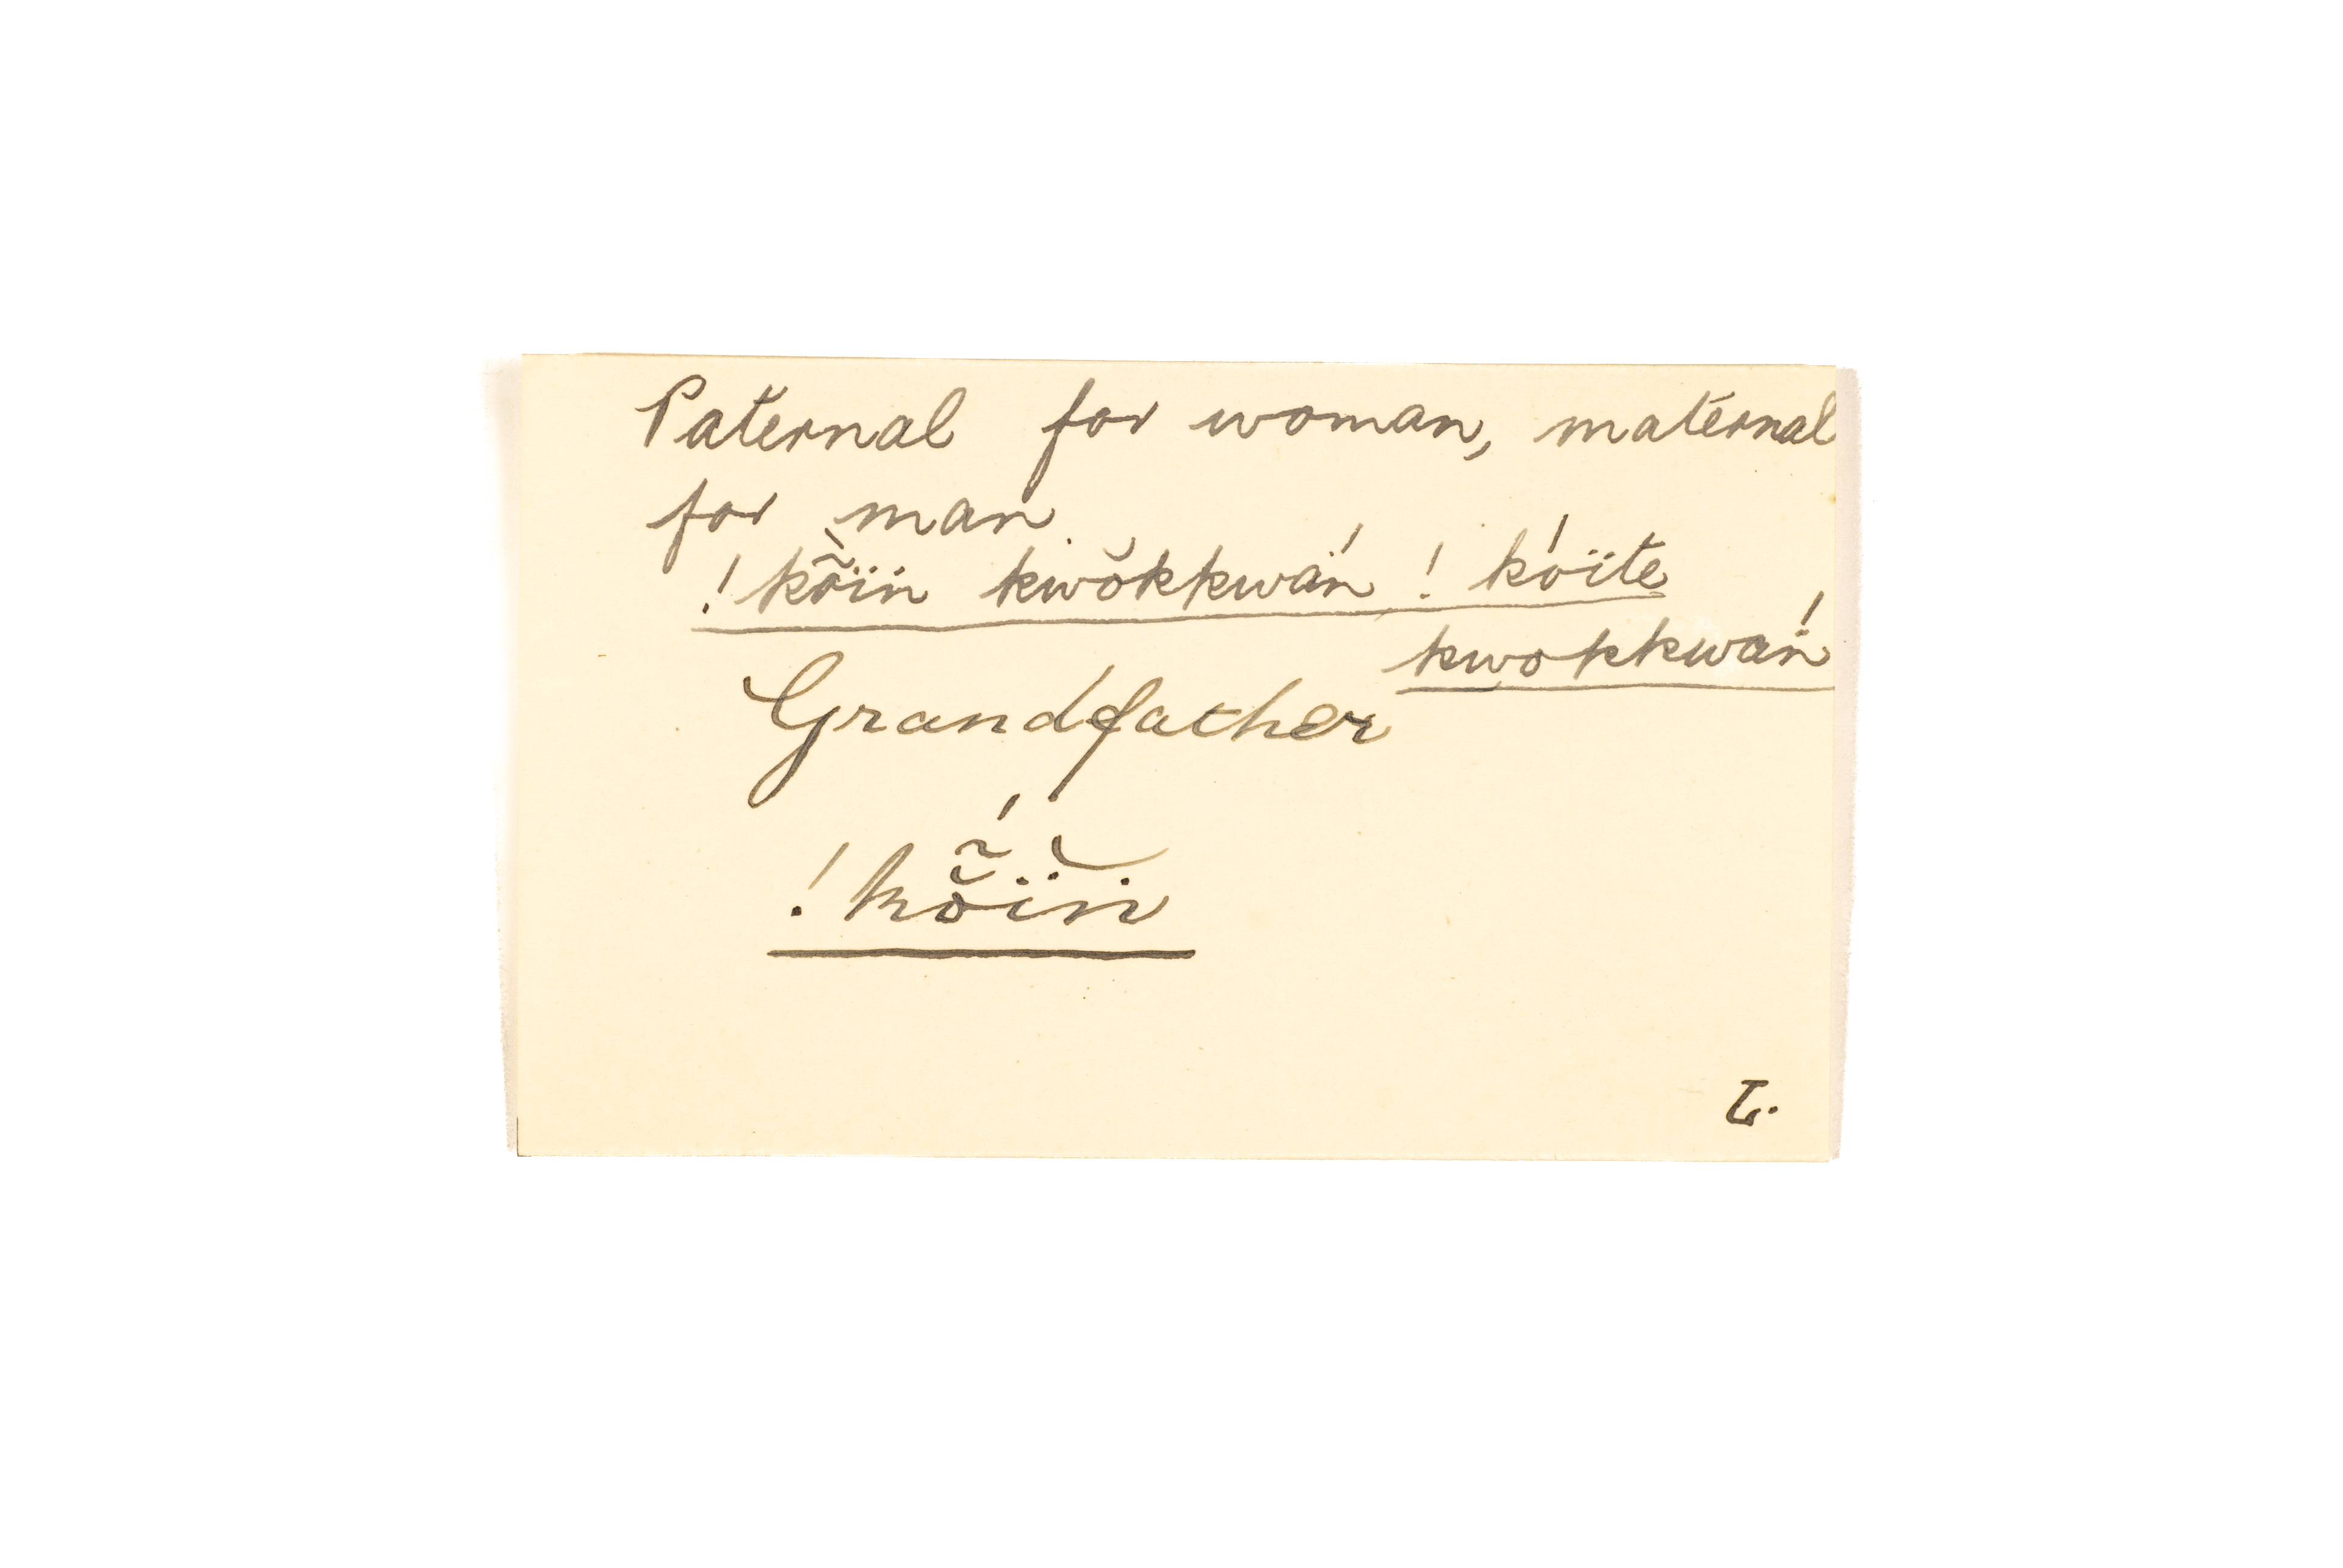 Paternal for woman, maternal
for man.
!kõ̀ïn kwŏkkwä́n !kóïte
kwokkwä́n
Grandfather
!kŏ̃́ïn̆
L.